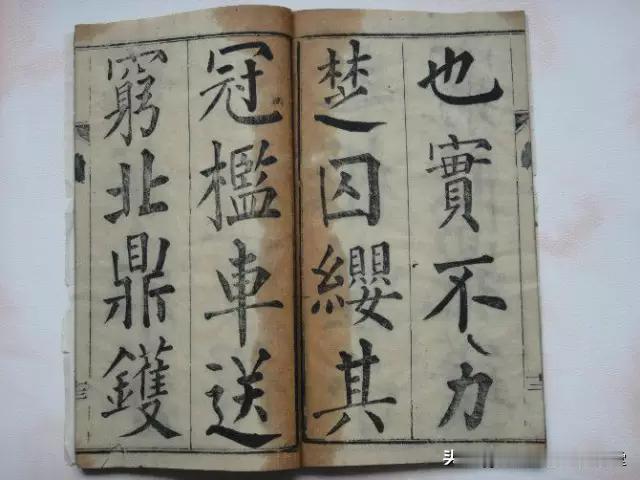 也實不力
楚囚纓其
冠檻車送
窮北鼎鑊
三
头